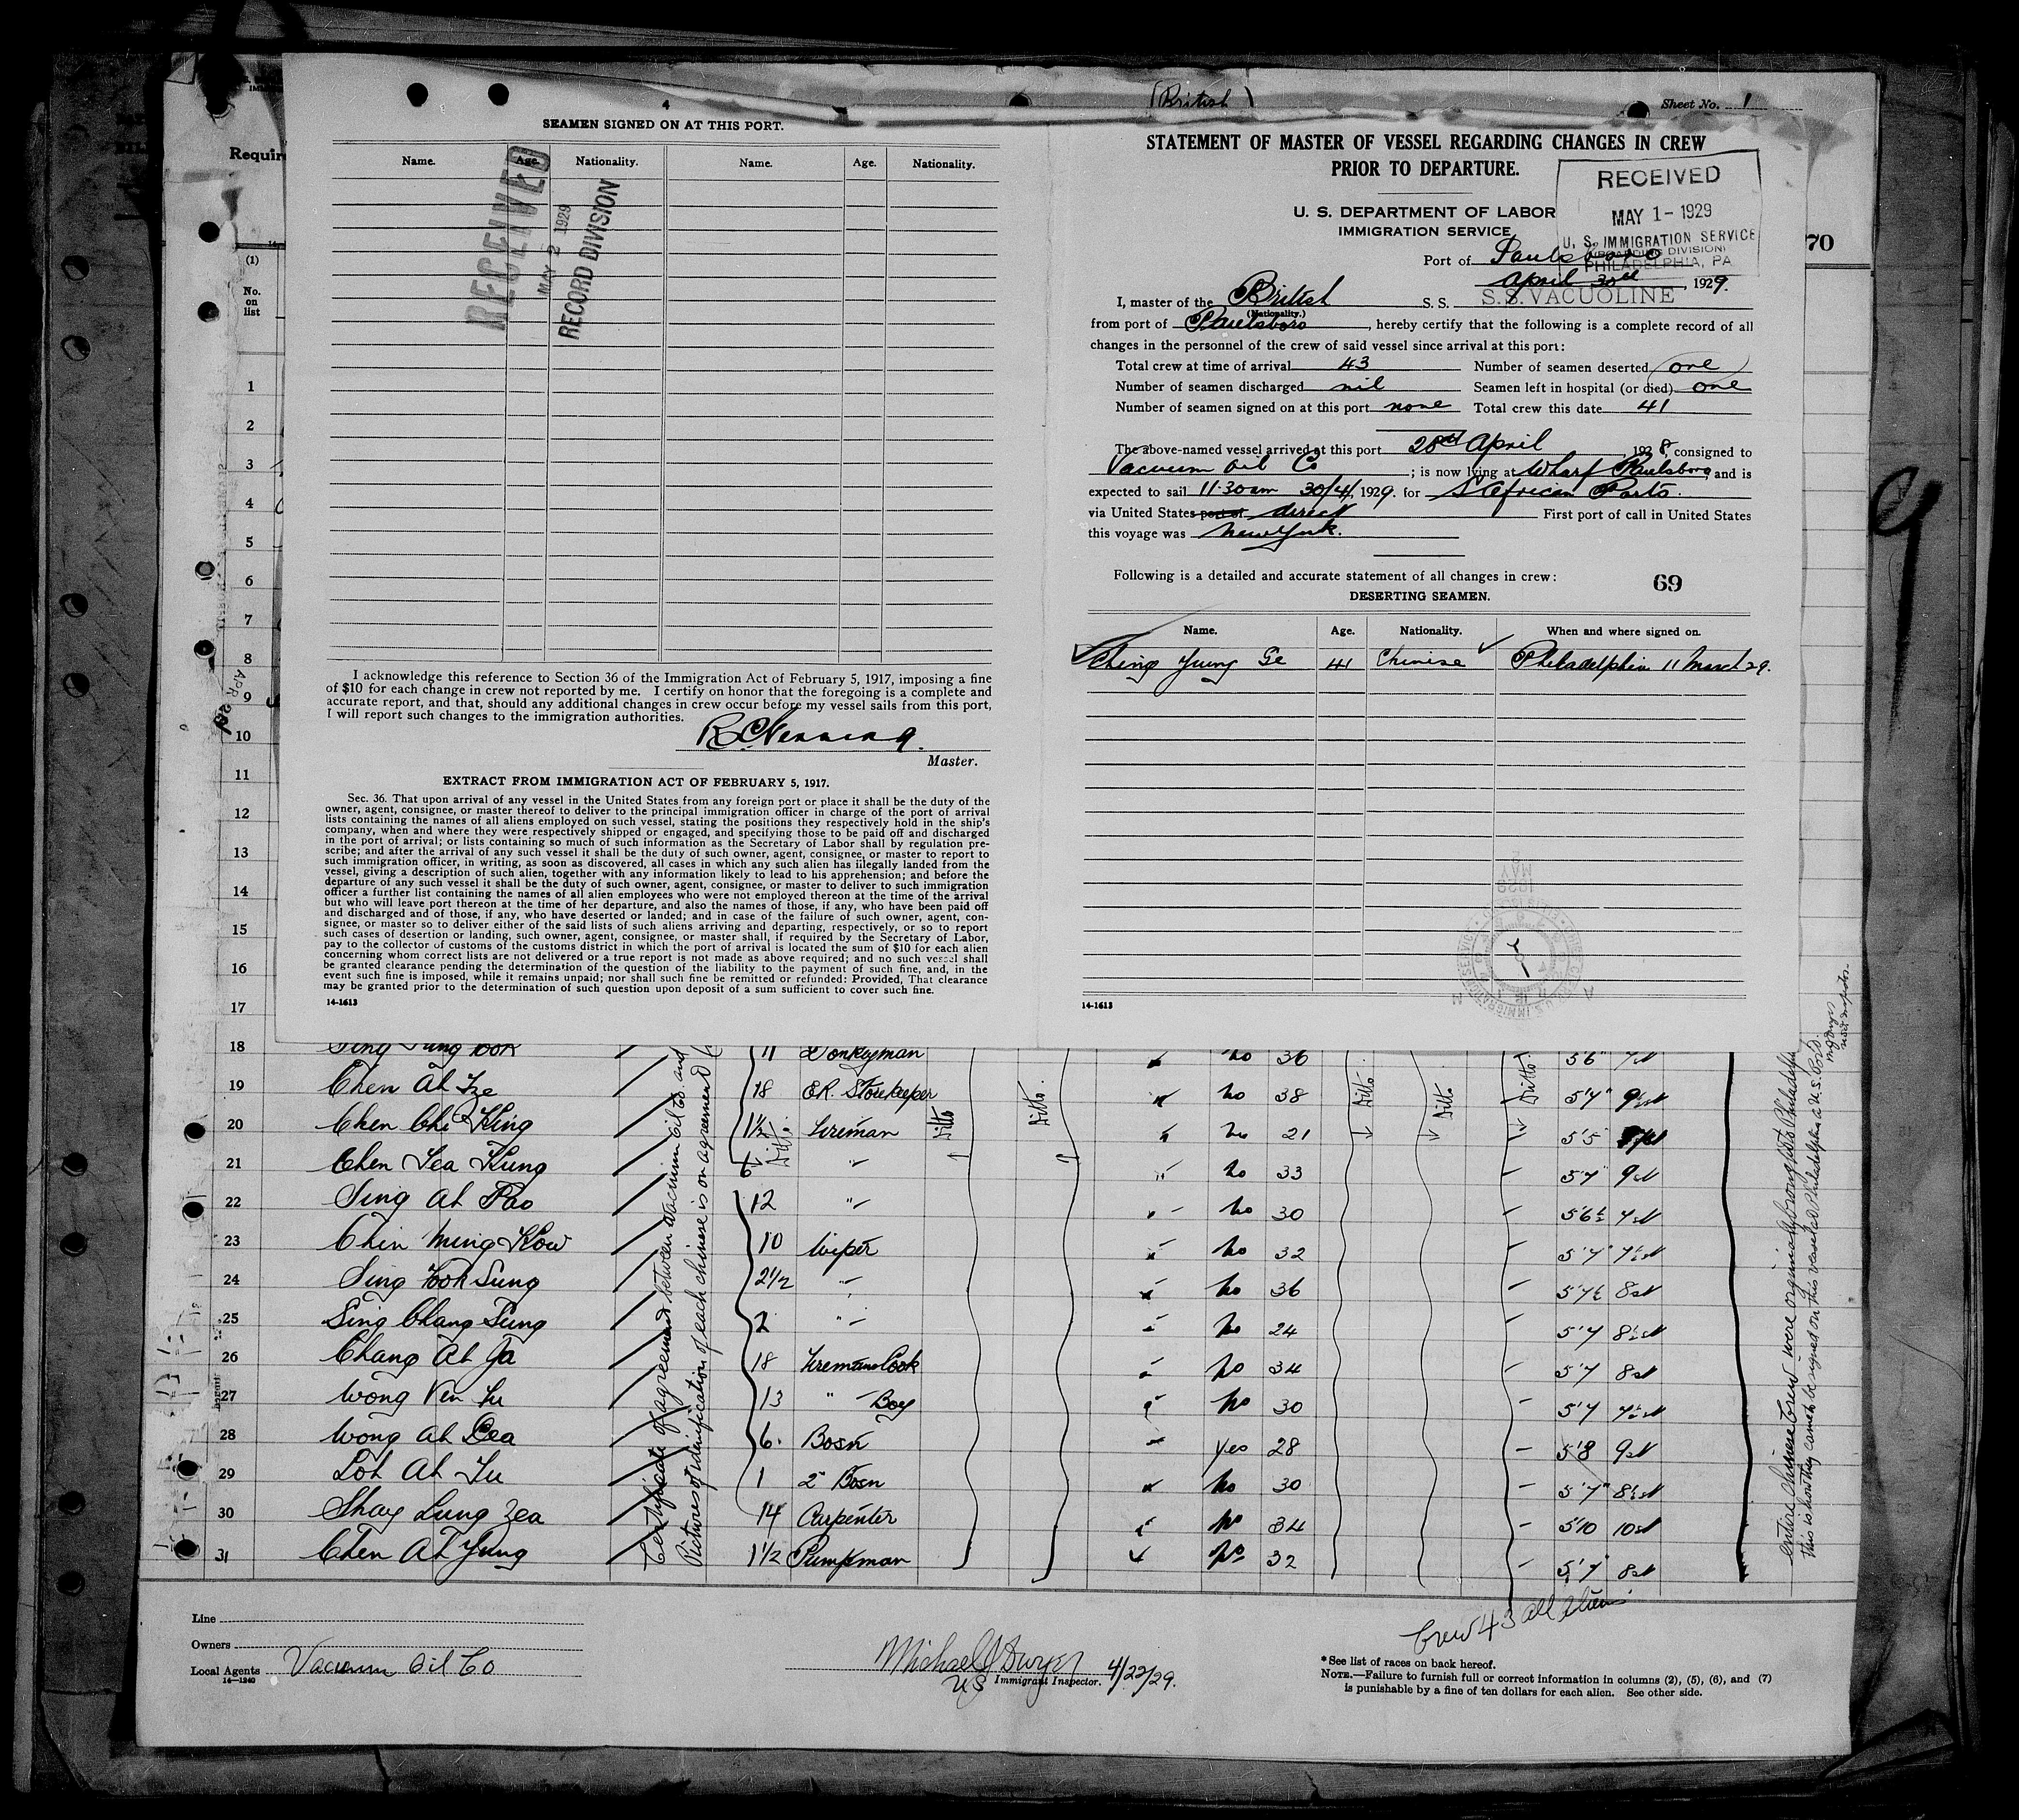 (British)
4
SEAMEN SIGNED ON AT THIS PORT.
Name. Age. Nationality. Name. Age. Nationality.
RECEIVED
MAY 2 1929
RECORD DIVISION
I acknowledge this reference to Section 36 of the Immigration Act of February 5, 1917, imposing a fine
of $10 for each change in crew not reported by me. I certify on honor that the foregoing is a complete and
accurate report, and that, should any additional changes in crew occur before my vessel sails from this port,
I will report such changes to the immigration authorities.
Master.
EXTRACT FROM IMMIGRATION ACT OF FEBRUARY 5, 1917.
Sec. 36. That upon arrival of any vessel in the United States from any foreign port or place it shall be the duty of the
owner, agent, consignee, or master thereof to deliver to the principal immigration officer in charge of the port of arrival
lists containing the names of all aliens employed on such vessel, stating the positions they respectively hold in the ship's
company, when and where they were respectively shipped or engaged, and specifying those to be paid off and discharged
in the port of arrival; or lists containing so much of such information as the Secretary of Labor shall by regulation pre-
scribe; and after the arrival of any such vessel it shall be the duty of such owner, agent, consignee, or master to report to
such immigration officer, in writing, as soon as discovered, all cases in which any such alien has illegally landed from the
vessel, giving a description of such alien, together with any information likely to lead to his apprehension; and before the
departure of any such vessel it shall be the duty of such owner, agent, consignee, or master to deliver to such immigration
officer a further list containing the names of all alien employees who were not employed thereon at the time of the arrival
but who will leave port thereon at the time of her departure, and also the names of those, if any, who have been paid off
and discharged and of those, if any, who have deserted or landed; and in case of the failure of such owner, agent, con-
signee, or master so to deliver either of the said lists of such aliens arriving and departing, respectively, or so to report
such cases of desertion or landing, such owner, agent, consignee, or master shall, if required by the Secretary of Labor,
pay to the collector of customs of the customs district in which the port of arrival is located the sum of $10 for each alien
concerning whom correct lists are not delivered or a true report is not made as above required; and no such vessel shall
be granted clearance pending the determination of the question of the liability to the payment of such fine, and, in the
event such fine is imposed, while it remains unpaid; nor shall such fine be remitted or refunded: Provided, That clearance
may be granted prior to the determination of such question upon deposit of a sum sufficient to cover such fine.
14-1613
Sheet No. 1
STATEMENT OF MASTER OF VESSEL REGARDING CHANGES IN CREW
PRIOR TO DEPARTURE.
U. S. DEPARTMENT OF LABOR
IMMIGRATION SERVICE
RECEIVED
MAY 1- 1929
U. S. IMMIGRATION SERVICE
PHILADELPHIA, PA
Port of Paulsboro
April 30th, 1929.
I, master of the British S. S. S.S. VACUOLINE
(Nationality.)
from port of Paulsboro, hereby certify that the following is a complete record of all
changes in the personnel of the crew of said vessel since arrival at this port:
Total crew at time of arrival 43 Number of seamen deserted one
Number of seamen discharged nil Seamen left in hospital (or died) one
Number of seamen signed on at this port none Total crew this date 41
The above-named vessel arrived at this port 28th April, 1928, consigned to
Vacuum Oil Co; is now lying at Wharf Paulsboro, and is
expected to sail 11.30am 30/4/, 1929. for S African Ports.
via United States port of direct First port of call in United States
this voyage was New York.
Following is a detailed and accurate statement of all changes in crew:
69
DESERTING SEAMEN.
Name. Age. Nationality. When and where signed on.
Ching Yung Ge 41 Chinese Philadelphia 11 March 29.
14-1613
70
Requir
(1)
No.
on
list
1
2
3
4
5
6
7
8
9
10
11
12
13
14
15
16
17
18 11 Donkeyman no 36 5'6"
19 Chen Ah Tze 18 ER. Storekeeper no 38 5'7"
20 Chen Chi King 1½ Fireman no 21 5'5
21 Chen Sea Kung 6 " no 33 5'7" 9st
22 Sing Ah Pao 12 " no 30 5'6½ 7st
23 Chin Ming Kow 10 Wiper no 32 5'7" 7½st
24 Sing Fook Sung 2½ " no 36 5'7½ 8st
25 Sing Chang Sung 2 " no 24 5'7 8½st
26 Chang Ah Ga 18 Firemans Cook no 34 5'7 8st
27 Wong Ven Fu 13 " Boy no 30 5'7 7½st
28 Wong Ah Dea 6. Bosn yes 28 5'8 9st
29 Loh Ah Fu 1 2" Bosn no 30 5'7" 8½st
30 Shay Lung Zea 14 Carpenter no 34 5'10 10st
31 Chen Ah Yung 1½ Pumpman no 32 5'7" 8st
Ditto Ditto Ditto Ditto Ditto Ditto
Certificate of agreement between Vacuum Oil Co. and
Pictures of identification of each chinese is on agreement
entire Chinese crew were originally brought to Philadelphia
This is how they came to be signed on this vessel at Philadelphia a U.S. Port.
Crew 43 all aliens
Line
Owners
Local Agents Vacuum Oil Co
14-1240
Michael J Dwyer 4/22/29.
US Immigrant Inspector.
* See list of races on back hereof.
NOTE.—Failure to furnish full or correct information in columns (2), (5), (6), and (7)
is punishable by a fine of ten dollars for each alien. See other side.